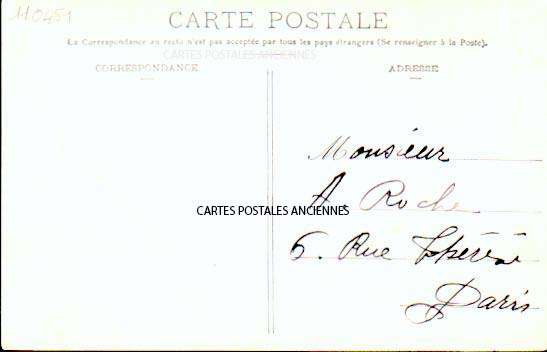 110451
CARTE POSTALE
La Correspondance au recto n'est pas acceptée par tous les pays étrangers (Se renseigner à la Poste).
CARTES POSTALES ANCIENNES
CORRESPONDANCE
ADRESSE
Monsieur
A. Roche
CARTES POSTALES ANCIENNES
6. Rue Thérèse
Paris